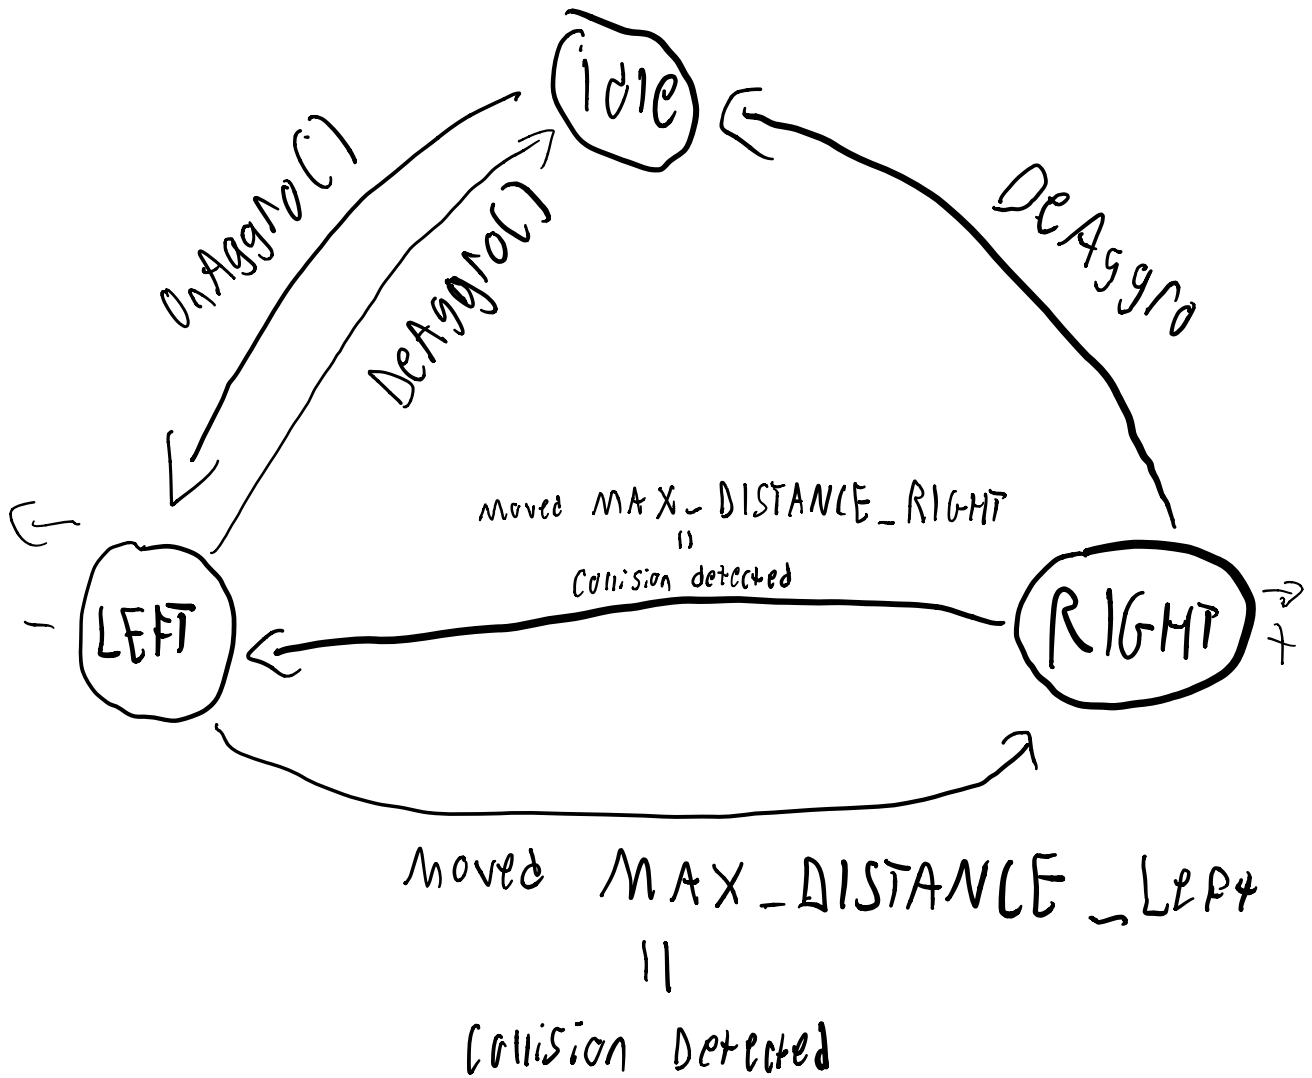 idle
OnAggro()
DeAggro()
DeAggro
Moved MAX_DISTANCE_RIGHT
||
Collision detected
LEFT
-
RIGHT
+
Moved MAX_DISTANCE_Left
||
Collision Detected